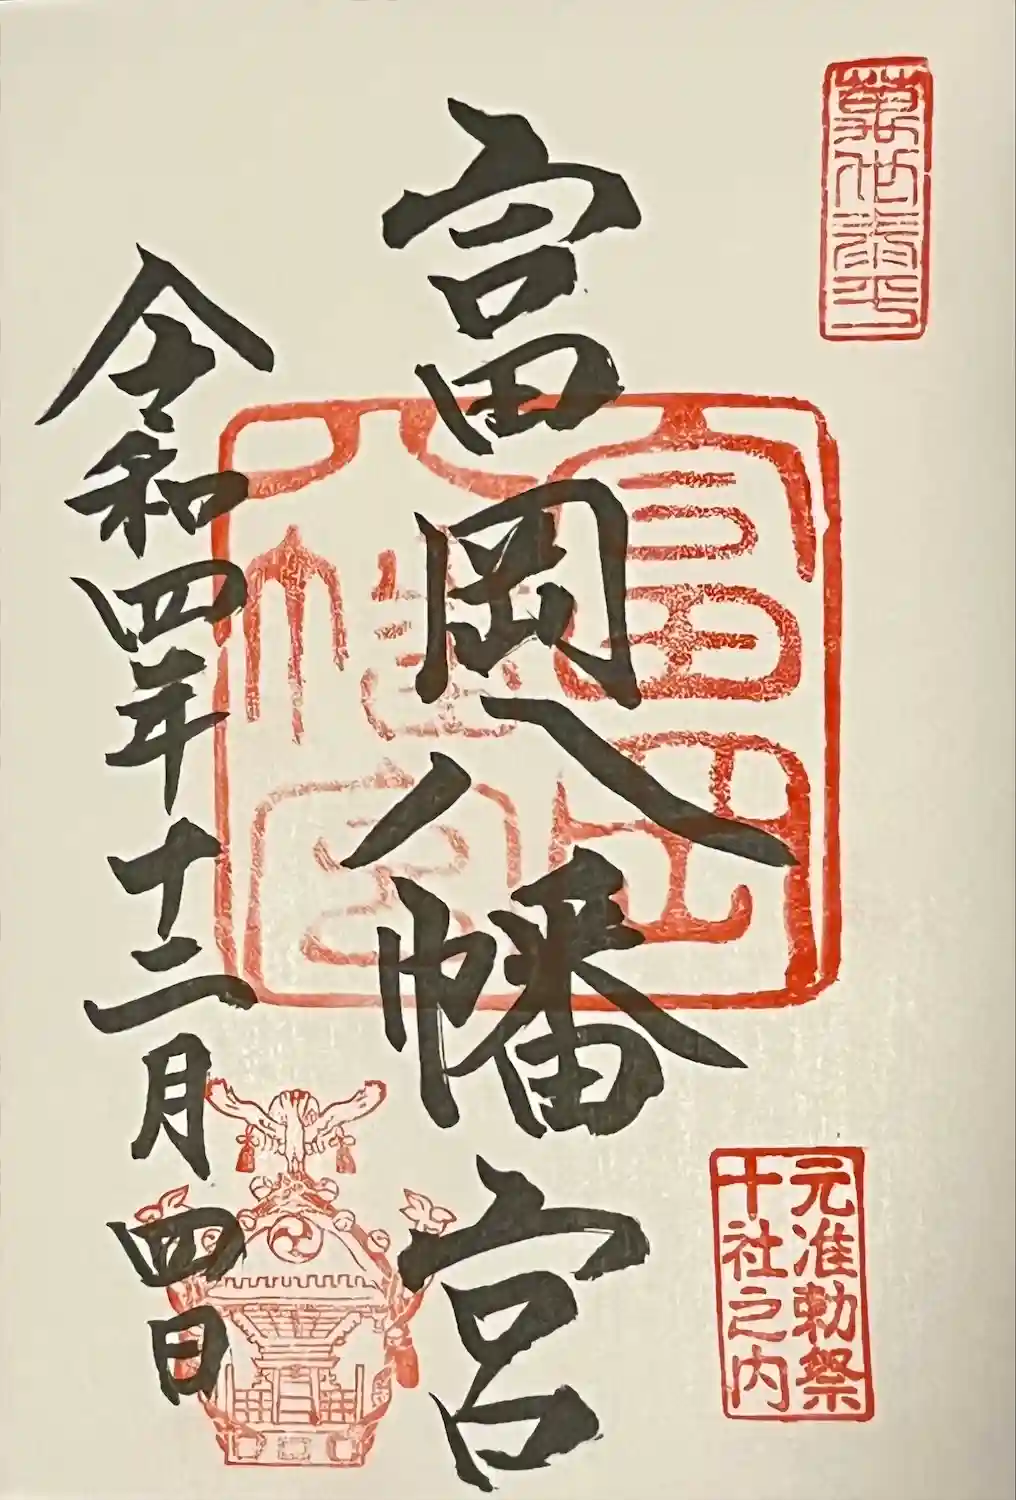 元准勅祭
十社之内
富岡八幡宮
富岡
八幡宮
令和四年十二月四日